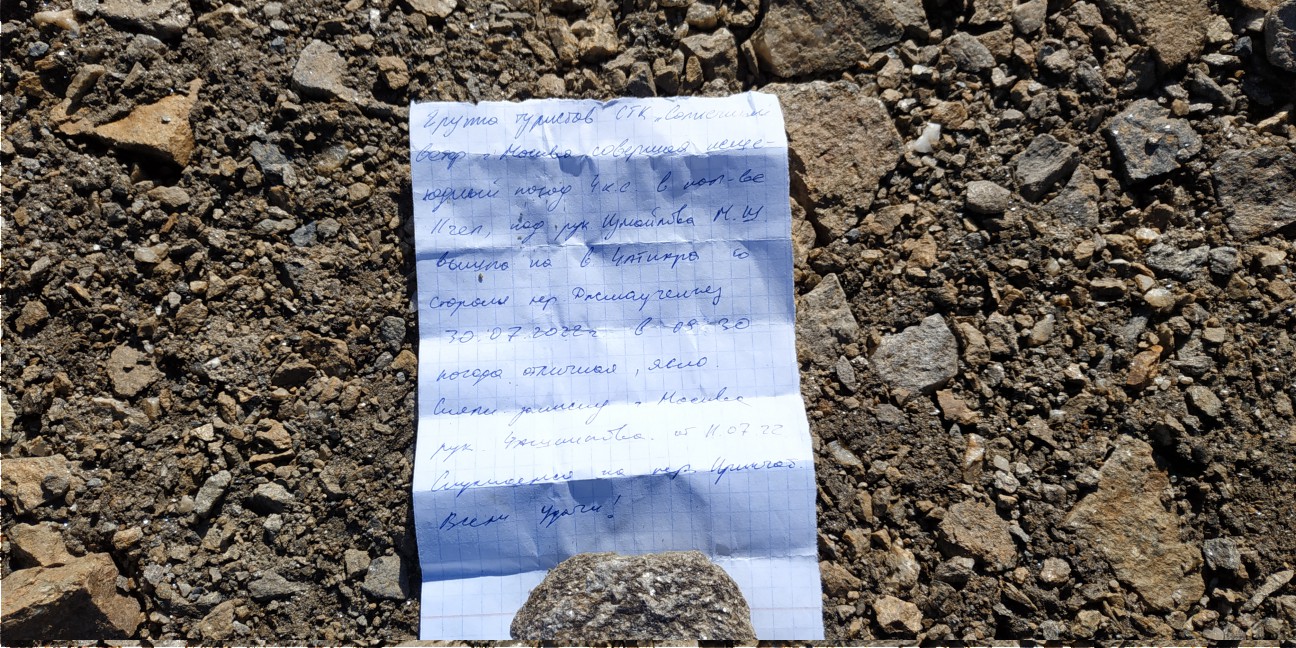 Группа туристов СТК "Солнечный
ветр" г. Москва, совершая пешеходный
поход 4 к.с в кол-ве
11 чел, под рук Исмайлова М.Ш
вышла на в Чатикара со
стороны пер Джаловчат
30.07.2022г. в 09 30
погода отличная, ясно.
Сняли записку г. Москва
рук. от 11.07 22
Спускаемся на пер.
Всем Удачи!